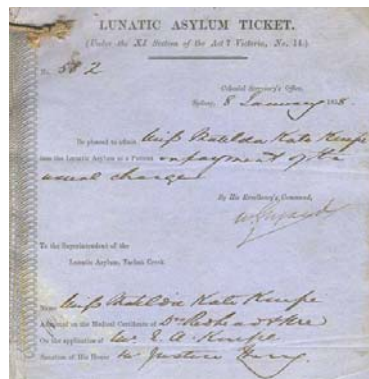 LUNATIC ASYLUM TICKET.
(Under the XI Section of the Act 7 Victoria, No. 14.)
No. 582
Colonial Secretary's Office,
Sydney, 8 January 1858.
Be pleased to admit Miss Matilda Kate Kempe
into the Lunatic Asylum as a Patient on payment of the
usual charges
By His Excellency's Command,
To the Superintendent of the
Lunatic Asylum, Tarban Creek.
Name Miss Matilda Kate Kempe
Admitted on the Medical Certificate of Drs Redhead &
On the application of Mr. E. A. Kempe
Sanction of His Honor Mr Justice